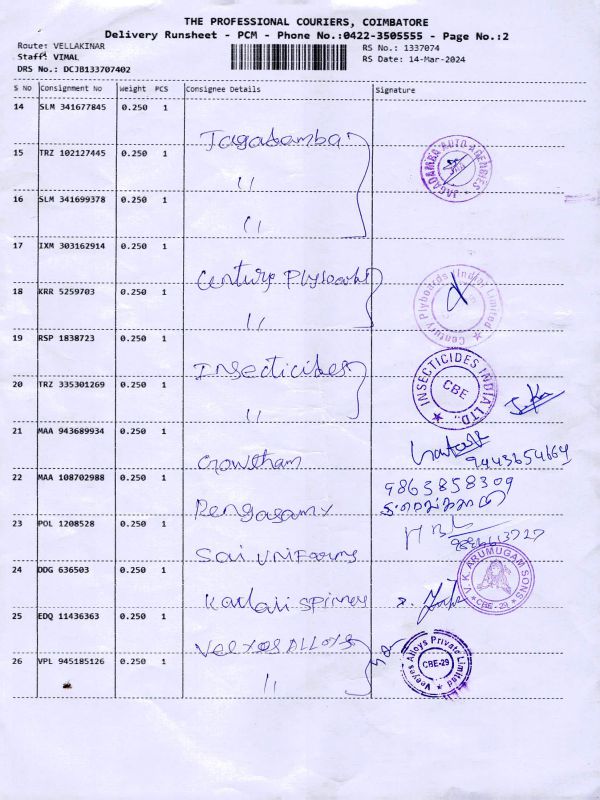 THE PROFESSIONAL COURIERS, COIMBATORE
Delivery Runsheet - PCM - Phone No.:0422-3505555 - Page No.:2
Route: VELLAKINAR
RS No.: 1337074
Staff: VIMAL
RS Date: 14-Mar-2024
DRS No.: DCJB133707402
S NO Consignment No Weight PCS Consignee Details Signature
14 SLM 341677845 0.250 1
Jagadamba
15 TRZ 102127445 0.250 1
JAGADAMBA AUTO AGENCIES
"
16 SLM 341699378 0.250 1
"
17 IXM 303162914 0.250 1
Century Plyboards
Century Plyboards (India) Limited
18 KRR 5259703 0.250 1
"
19 RSP 1838723 0.250 1
Insecticides
INSECTICIDES INDIA LTD.
CBE
20 TRZ 335301269 0.250 1
"
21 MAA 943689934 0.250 1
Gowtham
9443654669
22 MAA 108702988 0.250 1
9865858309
Rengasamy
23 POL 1208528 0.250 1
Sai Uniforms
24 DDG 636503 0.250 1
V.K. ARUMUGAM SONS
CBE-29
Kadari Spinners
25 EDQ 11436363 0.250 1
Veeyes Alloys
Veeyes Alloys Private Limited
CBE-29
26 VPL 945185126 0.250 1
"